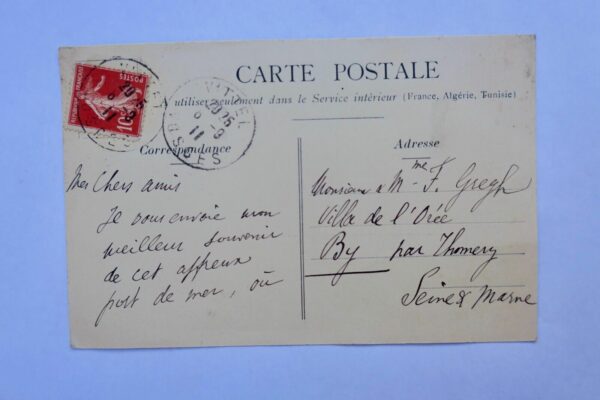 CARTE POSTALE
A utiliser seulement dans le Service intérieur (France, Algérie, Tunisie)
Correspondance
Mes Chers amis
Je vous envoie mon
meilleur souvenir
de cet affreux
port de mer, où
Adresse
Monsieur & Mme F. Gregh
Villa de l'Orée
By par Thomery
Seine & Marne
VITTEL
20*15
8 -9
11
VOSGES
POSTES
10